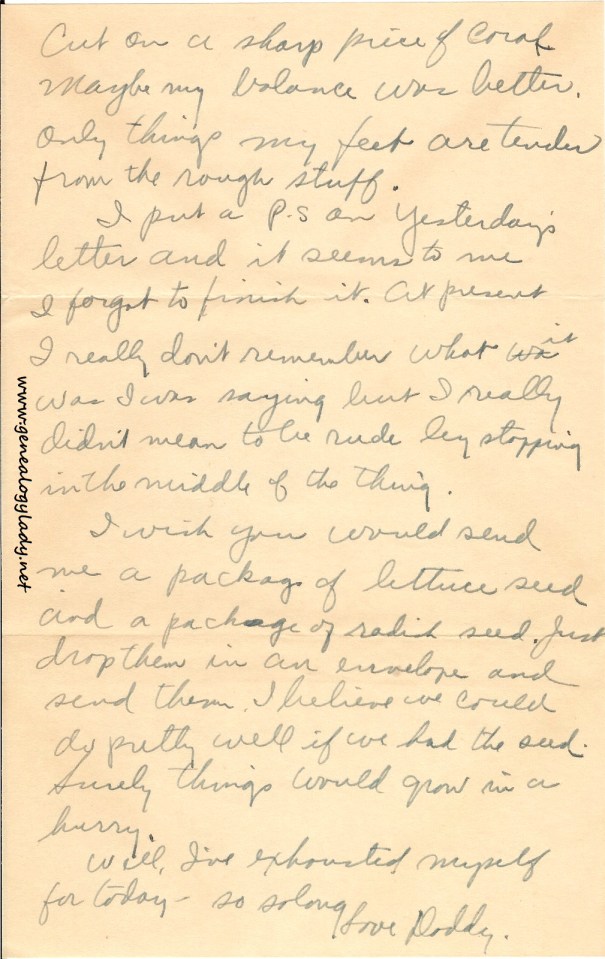 Cut on a sharp piece of coral.
Maybe my balance was better.
Only things my feet are tender
from the rough stuff.
I put a P.S on yesterday's
letter and it seems to me
I forgot to finish it. At present
I really don't remember what wa it
was I was saying but I really
didn't mean to be rude by stopping
in the middle of the thing.
I wish you would send
me a package of lettuce seed
and a package of radish seed. Just
drop them in an envelope and
send them. I believe we could
do pretty well if we had the seed.
Surely things would grow in a
hurry.
Well, I've exhausted myself
for today - so solong
Love Daddy.
www.genealogylady.net